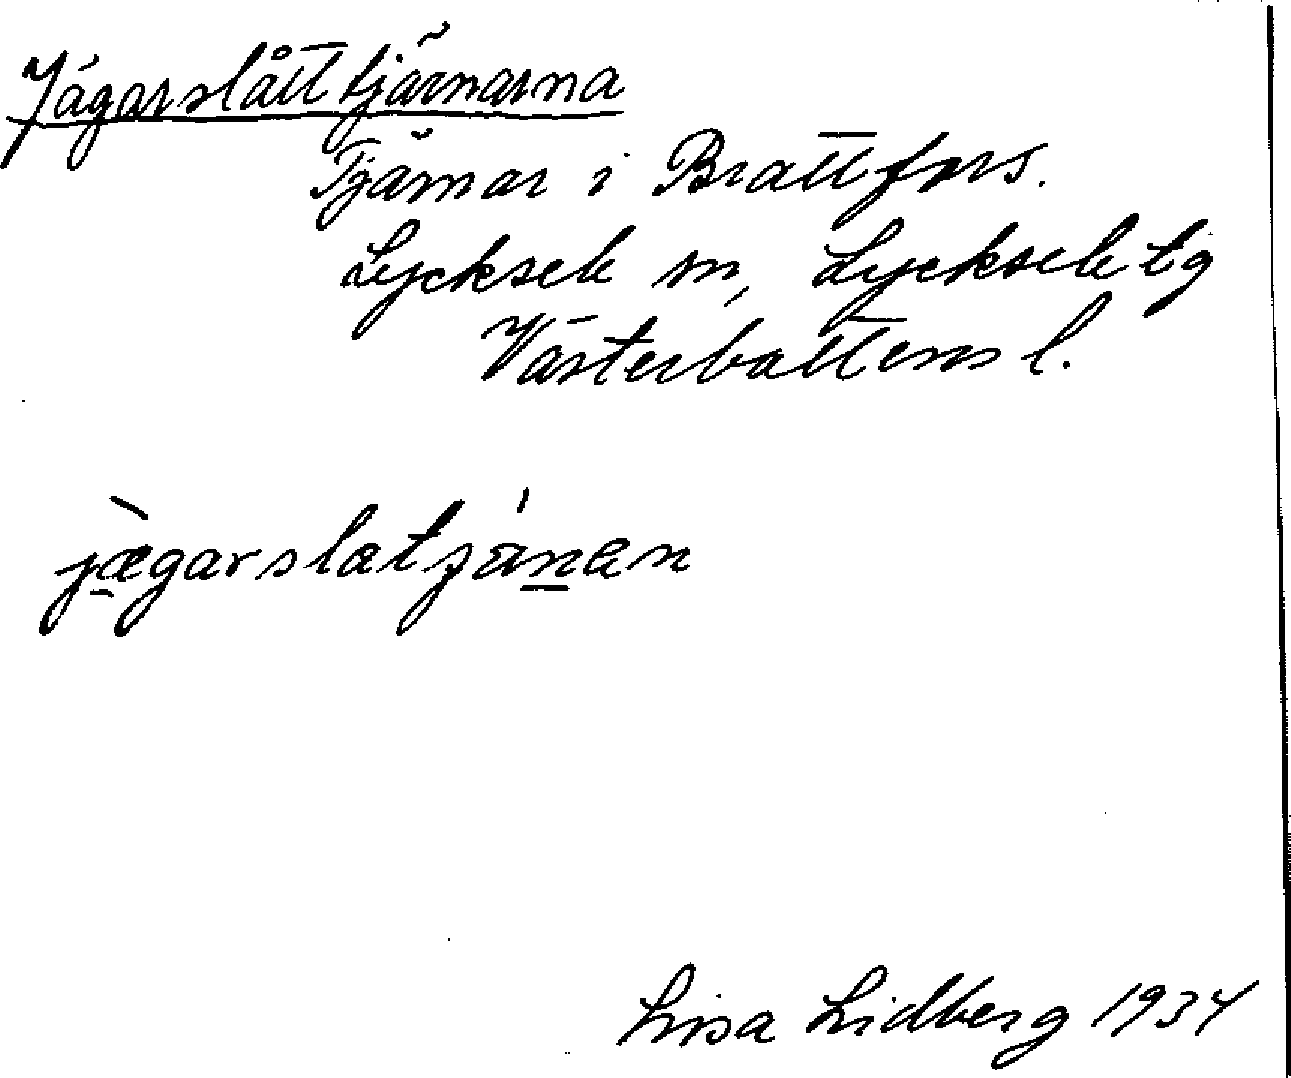 Jägarslåttjärnarna
Tjärnar i Brattfors.
Lycksele sn, Lycksele tg
Västerbottens l.
jægarslatjänen
Lisa Lidberg 1934